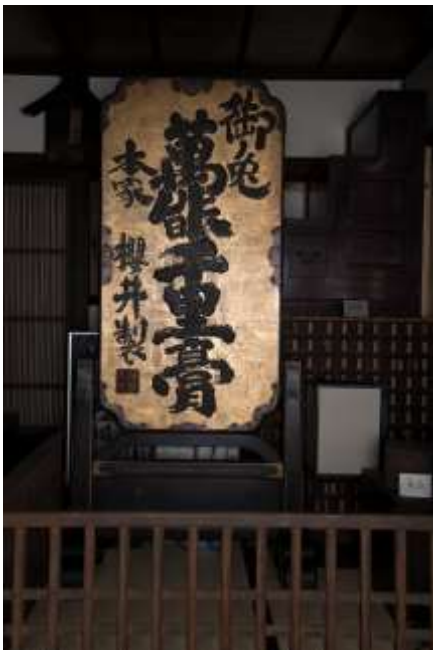 御免
萬能千里膏
本家 櫻井製